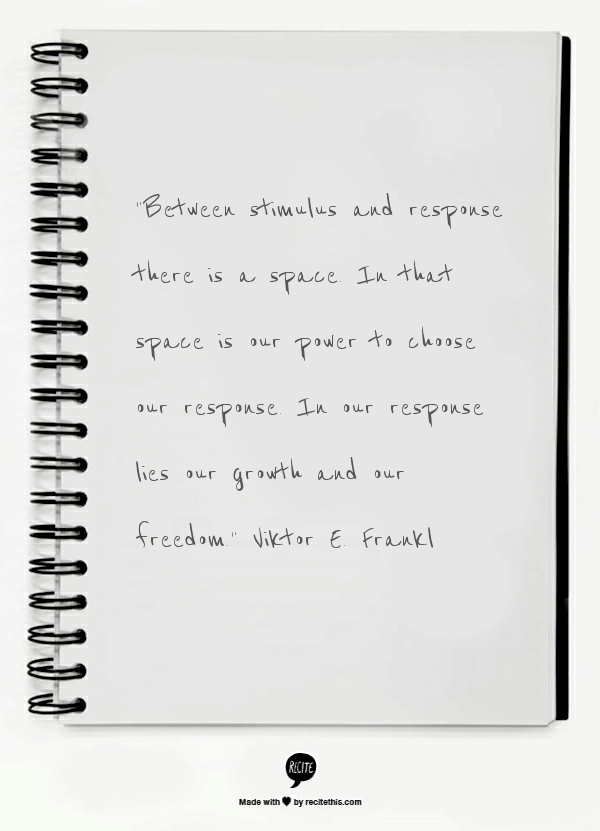 "Between stimulus and response
there is a space. In that
space is our power to choose
our response. In our response
lies our growth and our
freedom." Viktor E. Frankl
RECITE
Made with ♥ by recitethis.com